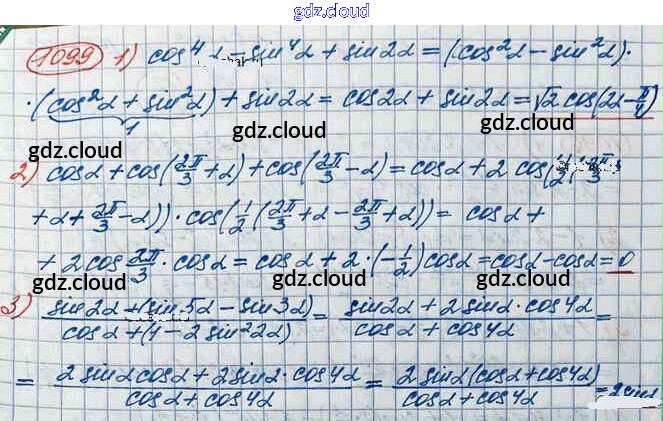 gdz.cloud
1099 1) cos⁴α − sin⁴α + sin2α = (cos²α − sin²α)·
·(cos²α + sin²α) + sin2α = cos2α + sin2α = √2 cos(2α − π/4)
1
gdz.cloud gdz.cloud
gdz.cloud gdz.cloud gdz.cloud
2) cosα + cos(2π/3 + α) + cos(2π/3 − α) = cosα + 2 cos(1/2(2π/3 +
+ α + 2π/3 − α))·cos(1/2(2π/3 + α − 2π/3 + α)) = cosα +
+ 2cos 2π/3 · cosα = cosα + 2·(−1/2)cosα = cosα − cosα = 0
gdz.cloud gdz.cloud gdz.cloud
3) (sin2α + (sin5α − sin3α))/(cosα + (1 − 2sin²2α)) = (sin2α + 2sinα·cos4α)/(cosα + cos4α) =
gdz.cloud gdz.cloud
= (2sinαcosα + 2sinα·cos4α)/(cosα + cos4α) = (2sinα(cosα + cos4α))/(cosα + cos4α) = 2sinα